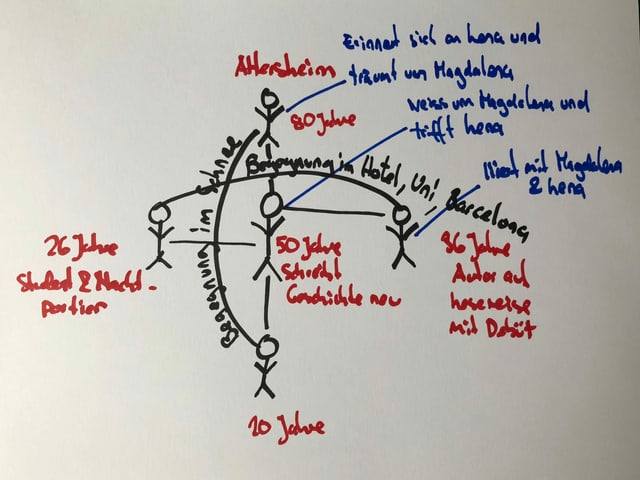 Erinnert sich an Lena und
träumt von Magdalena
Altersheim
80 Jahre
weiss um Magdalena und
trifft Lena
Begegnung im Hotel, Uni, Barcelona
Begegnung im Schnee
lliest mit Magdalena
& Lena
26 Jahre
Student & Nacht-
portier
50 Jahre
Schreibt
Geschichte neu
36 Jahre
Autor auf
Lesereise
mit Debüt
10 Jahre